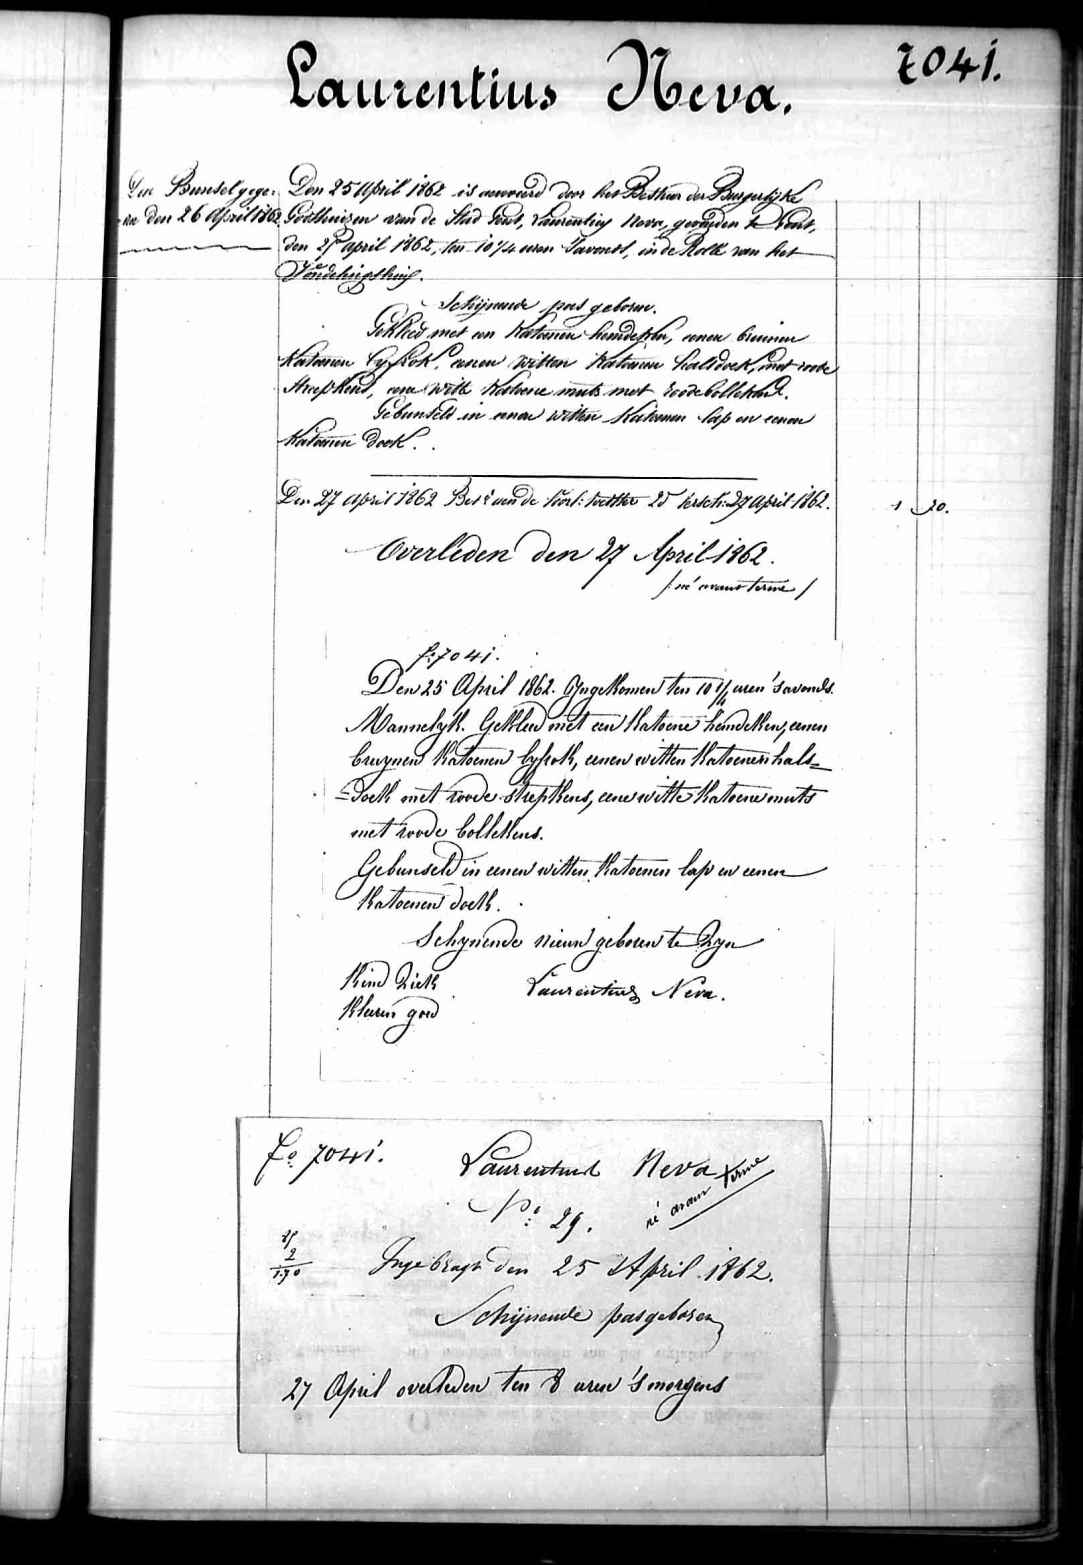 7041.
Laurentius Neva.
Den Bunsel gege-
ven den 26 April 1862
Den 25 April 1862 is aenveerd door het Bestuur der Burgerlijke
Godshuizen van de Stad Gent, Laurentius Neva, gevonden te Gent,
den 25 april 1862, ten 10 1/4 uren 'savonds, in de Rolle van het
Vondelingshuis.
Schijnende pas geboren.
Gekleed met een Katoenen hemdeken, eenen bruinen
Katoenen lijfrok, eenen witten Katoenen halsdoek, met roode
streepkens, eene witte Katoene muts met roode bollekens.
Gebunseld in eenen witten Katoenen lap en eenen
Katoenen doek.
Den 27 april 1862 Bet. aen de 25 27 april 1862.
1 20.
Overleden den 27 April 1862.
/ né avant terme /
f: 7041.
Den 25 April 1862. Ingekomen ten 10 1/4 uren 's avonds.
Mannelyk. Gekleed met een Katoene hemdeken, eenen
bruynen Katoenen lyfrok, eenen witten Katoenen hals=
=doek met roode strepkens, eene witte Katoene muts
met roode bollekens.
Gebunseld in eenen witten Katoenen lap en eenen
Katoenen doek.
Schynende nieuw geboren te zyn
Kind Ziek
Laurentius Neva.
Kleeren goed
Fo 7041.
Laurentius Neva
né avant terme
No: 29.
2
1.90
Ingebragt den 25 April 1862.
Schijnende pasgeboren
27 April overleden ten 8 uren 's morgens